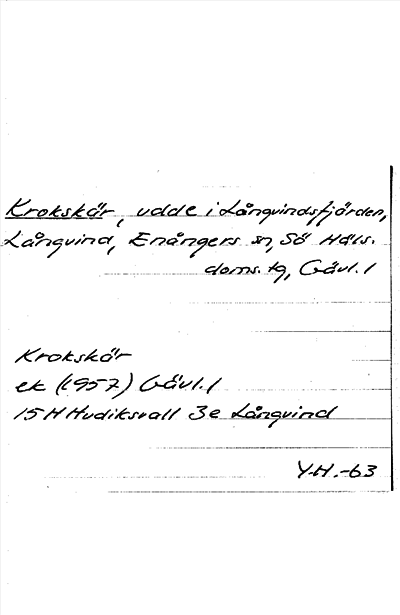 Krokskär, udde i Långvindsfjärden,
Långvind, Enångers sn, Sö Häls.
doms. tg, Gävl. l
Krokskär
ek (1957) Gävl. l
15H Hudiksvall 3e Långvind
Y.H. -63